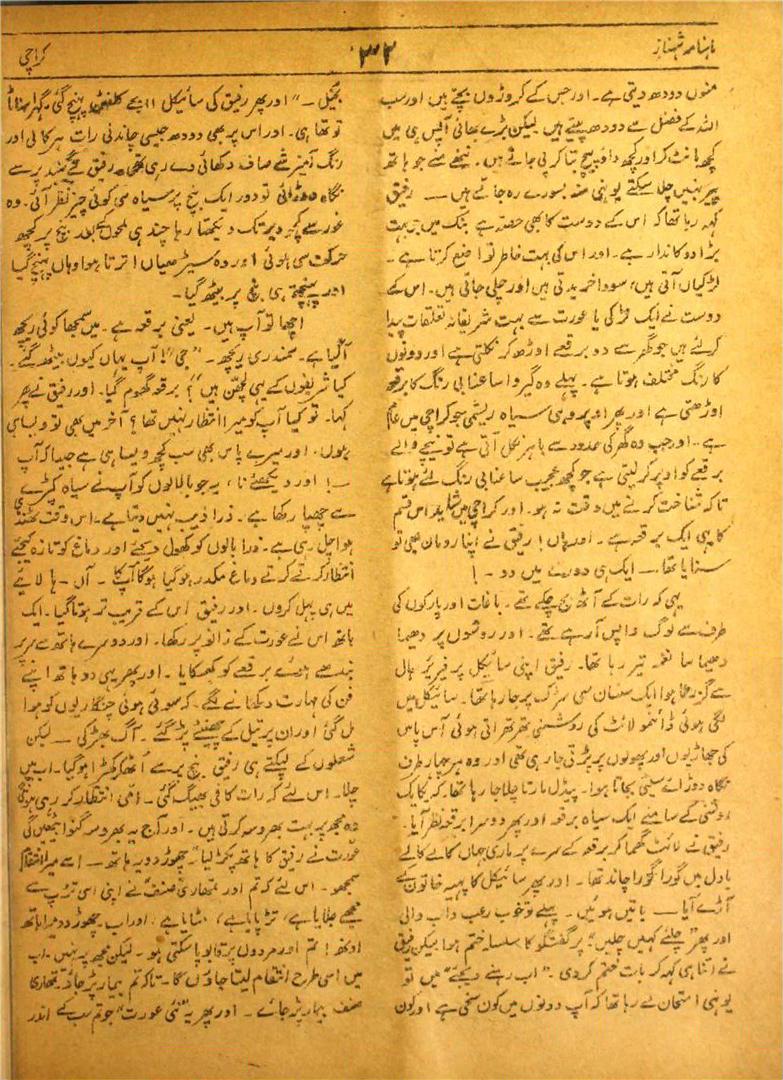 ماہنامہ شہناز
۳۲
کراچی
منوں دودھ دیتی ہے۔ اور جس کے کروڑوں بچے ہیں اور سب
اللہ کے فضل سے دودھ پیتے ہیں۔ لیکن بڑے بھائی آپس ہی میں
کچھ بانٹ کر اور کچھ داؤ پیچ بتا کر پی جاتے ہیں۔ ننھے سے جو ہاتھ
پیر نہیں چلا سکتے یونہی منہ بسورے رہ جاتے ہیں —— رفیق
کہہ رہا تھا کہ اس کے دوست کا بھی حصہ ہے بنک میں۔ بہت
بڑا دوکاندار ہے۔ اور اس کی بہت خاطر تواضع کرتا ہے۔
لڑکیاں آتی ہیں، سودا خریدتی ہیں اور چلی جاتی ہیں۔ اس کے
دوست نے ایک لڑکی یا عورت سے بہت شریفانہ تعلقات پیدا
کر لئے ہیں جو گھر سے دو برقعے اوڑھ کر نکلتی ہے اور دونوں
کا رنگ مختلف ہوتا ہے۔ پہلے وہ گیروا سا عنابی رنگ کا برقعہ
اوڑھتی ہے اور پھر اوپر وہی سیاہ ریشمی جو کراچی میں عام
ہے۔ اور جب وہ گھر کی حدود سے باہر نکل آتی ہے تو نیچے والے
برقعے کو اوپر کر لیتی ہے جو کچھ عجیب سا عنابی رنگ لئے ہوتا ہے
تاکہ شناخت کرنے میں دقت نہ ہو۔ اور کراچی میں شاید اس قسم
کا یہی ایک برقعہ ہے۔ اور ہاں! رفیق نے اپنا رومان بھی تو
سنایا تھا —— ایک ہی دوست میں دو۔!
یہی کہ رات کے آٹھ بج چکے تھے۔ باغات اور پارکوں کی
طرف سے لوگ واپس آ رہے تھے۔ اور روشوں پر دھیما
دھیما سا نغمہ تیر رہا تھا۔ رفیق اپنی سائیکل پر فیریر ہال
سے گزرتا ہوا ایک سنسان سی سڑک پر جا رہا تھا۔ سائیکل میں
لگی ہوئی ڈائنمو لائٹ کی روشنی تھرتھراتی ہوئی آس پاس
کی جھاڑیوں اور پھولوں پر پڑتی جا رہی تھی اور وہ ہر چہار طرف
نگاہ دوڑائے سیٹی بجاتا ہوا۔ پیڈل مارتا چلا جا رہا تھا۔ کہ یکایک
روشنی کے سامنے ایک سیاہ برقعہ اور پھر دوسرا برقعہ نظر آیا۔
رفیق نے لائٹ گھما کر برقعہ کے سرے پر ماری جہاں کالے کالے
بادل میں گورا گورا چاند تھا۔ اور پھر سائیکل کا پہیہ خاتون کے
آڑے آیا —— باتیں ہوئیں۔ پہلے تو خوب رعب داب والی
اور پھر "چلئے کہیں چلیں" پر گفتگو کا سلسلہ ختم ہوا لیکن رفیق
نے اتنا ہی کہہ کر بات ختم کر دی۔ "اب رہنے دیجئے" میں تو
یونہی امتحان لے رہا تھا کہ آپ دونوں میں کون سخی ہے اور کون
بخیل —" اور پھر رفیق کی سائیکل ۱۱ بجے کلفٹن پہنچ گئی۔ گہرا سناٹا
تو تھا ہی۔ اور اس پر بھی دودھ جیسی چاندنی رات ہر کالی اور
رنگ آمیز شے صاف دکھائی دے رہی تھی۔ رفیق نے گنبد پر سے
نگاہ دوڑائی تو دور ایک بنچ پر سیاہ سی کوئی چیز نظر آئی۔ وہ
غور سے کچھ دیر تک دیکھتا رہا چند ہی لمحوں کے بعد بنچ پر کچھ
حرکت سی ہوئی اور وہ سیڑھیاں اترتا ہوا وہاں پہنچ گیا
اور پہنچتے ہی بنچ پر بیٹھ گیا۔
اچھا تو آپ ہیں۔ یعنی برقعہ ہے۔ میں سمجھا کوئی ریچھ
آ گیا ہے۔ سمندری ریچھ۔ "جی"! آپ یہاں کیوں بیٹھ گئے۔
کیا شریفوں کے یہی لچھن ہیں"؟ برقعہ گھوم گیا۔ اور رفیق نے پھر
کہا۔ تو کیا آپ کو میرا انتظار نہیں تھا؟ آخر میں بھی تو ویسا ہی
ہوں۔ اور میرے پاس بھی سب کچھ ویسا ہی ہے جیسا کہ آپ
—! اور دیکھئے نا، یہ جو بالوں کو آپ نے سیاہ کپڑے
سے چھپا رکھا ہے۔ ذرا زیب نہیں دیتا ہے۔ اس وقت ٹھنڈی
ہوا چل رہی ہے۔ ذرا بالوں کو کھول دیجئے اور دماغ کو تازہ کیجئے
انتظار کرتے کرتے دماغ مکدر ہو گیا ہوگا آپ کا۔ آں۔ ہا لائیے
میں ہی پہل کروں۔ اور رفیق اس کے قریب تر ہوتا گیا۔ ایک
ہاتھ اس نے عورت کے زانو پر رکھا۔ اور دوسرے ہاتھ سے سر پر
بندھے ہوئے برقعے کو کھسکایا۔ اور پھر یہی دو ہاتھ اپنے
فن کی مہارت دکھانے لگے۔ کہ سوئی ہوئی چنگاریوں کو ہوا
مل گئی اور ان پر تیل کے چھینٹے پڑ گئے۔ آگ بھڑکی — لیکن
شعلوں کے لپکتے ہی رفیق بنچ پر سے اٹھ کھڑا ہو گیا۔ اب میں
چلا۔ اس لئے کہ رات کافی بھیگ گئی۔ امی انتظار کر رہی ہونگی
وہ مجھ پر بہت بھروسہ کرتی ہیں۔ اور آج یہ بھروسہ گنوا بیٹھیں گی
عورت نے رفیق کا ہاتھ پکڑ لیا۔ "چھوڑ دو یہ ہاتھ — اسے میرا انتقام
سمجھو۔ اس لئے کہ تم اور تمہاری صنف نے اپنی اسی تڑپ سے
مجھے جلایا ہے، تڑپایا ہے، ستایا ہے، اور اب۔ چھوڑ دو میرا ہاتھ
اونھ! تم اور مردوں پر قابو پا سکتی ہو۔ لیکن مجھ پہ نہیں۔ اب
میں اسی طرح انتقام لیتا جاؤں گا۔ تاکہ تم بیمار پڑ جاؤ تمہاری
صنف بیمار پڑ جائے۔ اور پھر یہ "نئی عورت" جو تم سب کے اندر